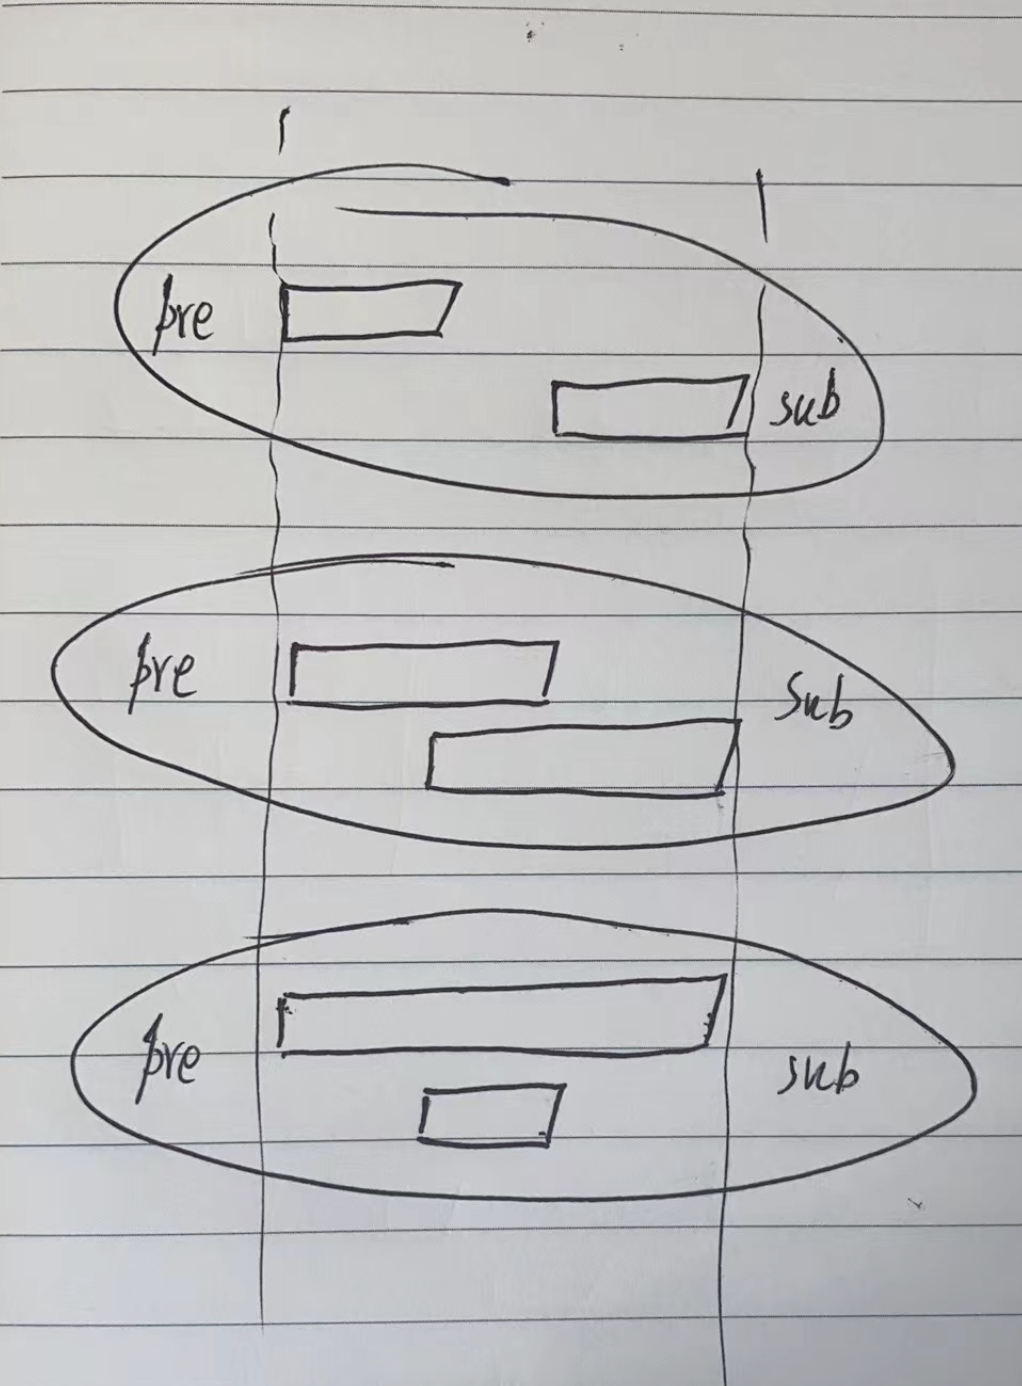 pre
sub
pre
Sub
pre
sub